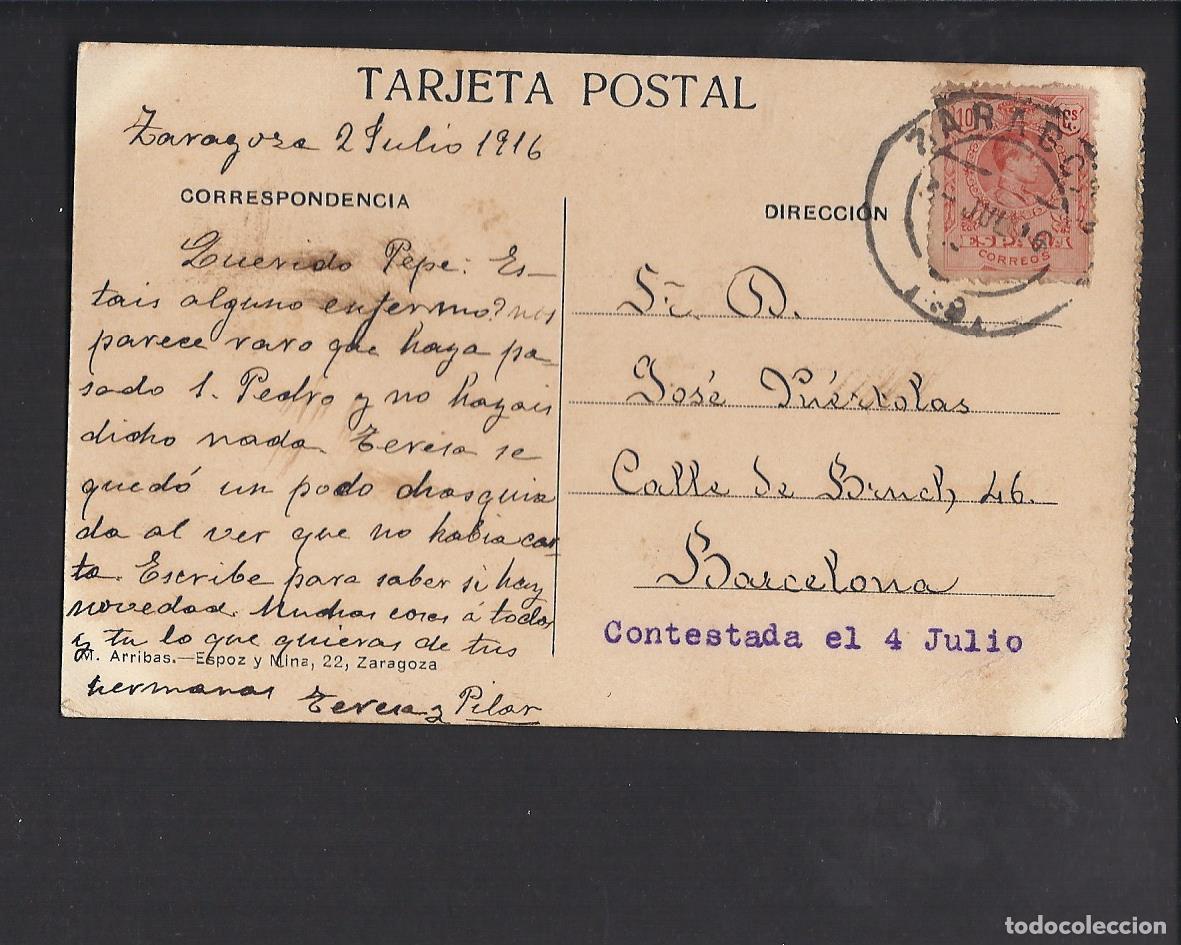 TARJETA POSTAL
Zaragoza 2 Julio 1916
CORRESPONDENCIA
Querido Pepe: Es-
tais alguno enfermo? nos
parece raro que haya pa-
sado S. Pedro y no hayais
dicho nada. Teresa se
quedó un podo chasquia
da al ver que no habia car
ta. Escribe para saber si hay
novedad. Muchas cosas á todos
y tu lo que quieras de tus
M. Arribas.—Espoz y Mina, 22, Zaragoza
hermanas Teresa y Pilar
DIRECCIÓN
10 Cs
ZARAGOZA
JUL 16
ESPAÑA
CORREOS
Sr. D.
José Puértolas
Calle de Bruch, 46.
Barcelona
Contestada el 4 Julio
todocoleccion